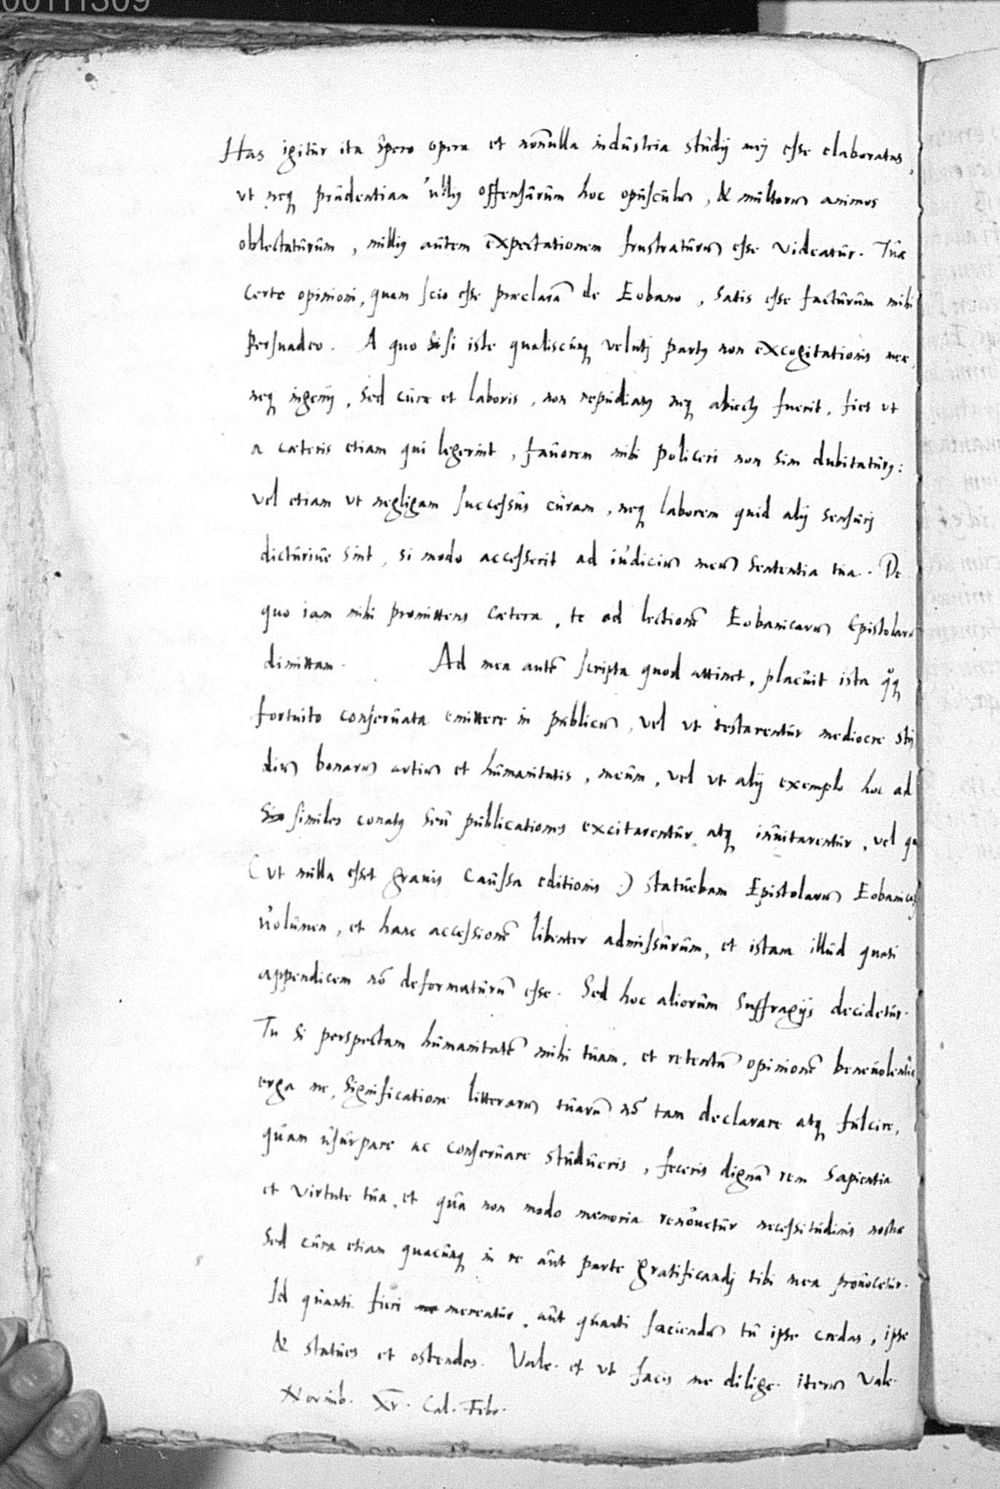 00111309
Has igitur ita spero opera et nonnulla industria studij mei esse elaboratas,
ut neq prudentiam ullius offensurum hoc opusculum, & multorum animos
oblectaturum, nullius autem expectationem frustraturum esse videatur. Tuae
certe opinioni, quam scio esse praeclarā de Eobano, satis esse facturum mihi
persuadeo. A quo si iste qualiscunq veluti partus non excogitationis meae,
neq ingenij, sed curae et laboris, non repudiatus neq abiectus fuerit, fiet ut
a caeteris etiam qui legerint, favorem mihi policeri non sim dubitaturus:
vel etiam ut negligam successus curam, neq laborem quid alij sensuri
dicturive sint, si modo accesserit ad iudicium meum sententia tua. De
quo iam mihi promittens caetera, te ad lectionē Eobanicarum Epistolarum
dimittam. Ad mea autē scripta quod attinet, placuit ista qq
fortuito conservata emittere in publicum, vel ut testarentur mediocre stu
dium bonarum artium et humanitatis, meum, vel ut alij exemplo hoc ad
similes conatus seu publicationes excitarentur atq invitarentur, vel
(ut nulla esset gravis caussa editionis) statuebam Epistolarum
volumen, et hanc accessionē libenter admissurum, et istam illud quasi
appendicem nō deformaturū esse. Sed hoc aliorum suffragijs decidetur.
Tu si perspectam humanitatē mihi tuam, et retentā opinionē benevolentiae
erga me, significatione litterarum tuarū nō tam declarare atq fulcire,
quam usurpare ac conservare studueris, feceris dignā rem sapientia
et virtute tua, et qua non modo memoria renovetur necessitudinis nostrae
sed cura etiam quacunq in re aut parte gratificandi tibi mea provocetur.
Id quanti fieri mereatur, aut quanti faciendum tu ipse credas, ipse
& statues et ostendes. Vale. et ut facis me dilige. iterum Vale.
Norimb. XV. Cal. Febr.